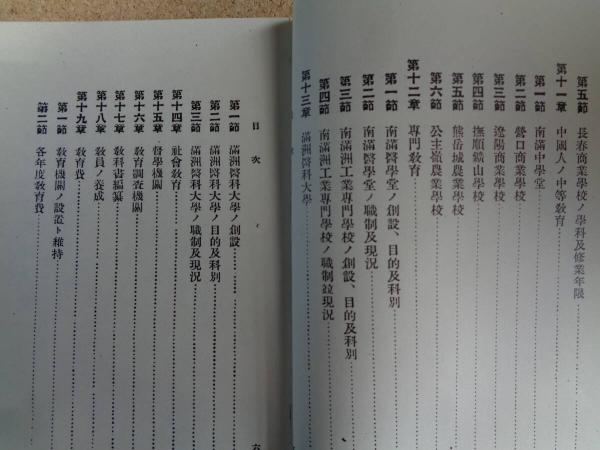 第五節 長春商業學校ノ學科及修業年限
第十一章 中國人ノ中等教育
第一節 南滿中學堂
第二節 營口商業學校
第三節 遼陽商業學校
第四節 撫順鑛山學校
第五節 熊岳城農業學校
第六節 公主嶺農業學校
第十二章 專門教育
第一節 南滿醫學堂ノ創設、目的及科別
第二節 南滿醫學堂ノ職制及現況
第三節 南滿洲工業專門學校ノ創設、目的及科別
第四節 南滿洲工業專門學校ノ職制竝現況
第十三章 滿洲醫科大學
目次
第一節 滿洲醫科大學ノ創設
第二節 滿洲醫科大學ノ目的及科別
第三節 滿洲醫科大學ノ職制及現況
第十四章 社會教育
第十五章 督學機關
第十六章 教育調査機關
第十七章 教科書編纂
第十八章 教員ノ養成
第十九章 教育費
第一節 教育機關ノ設立ト維持
第二節 各年度教育費
六